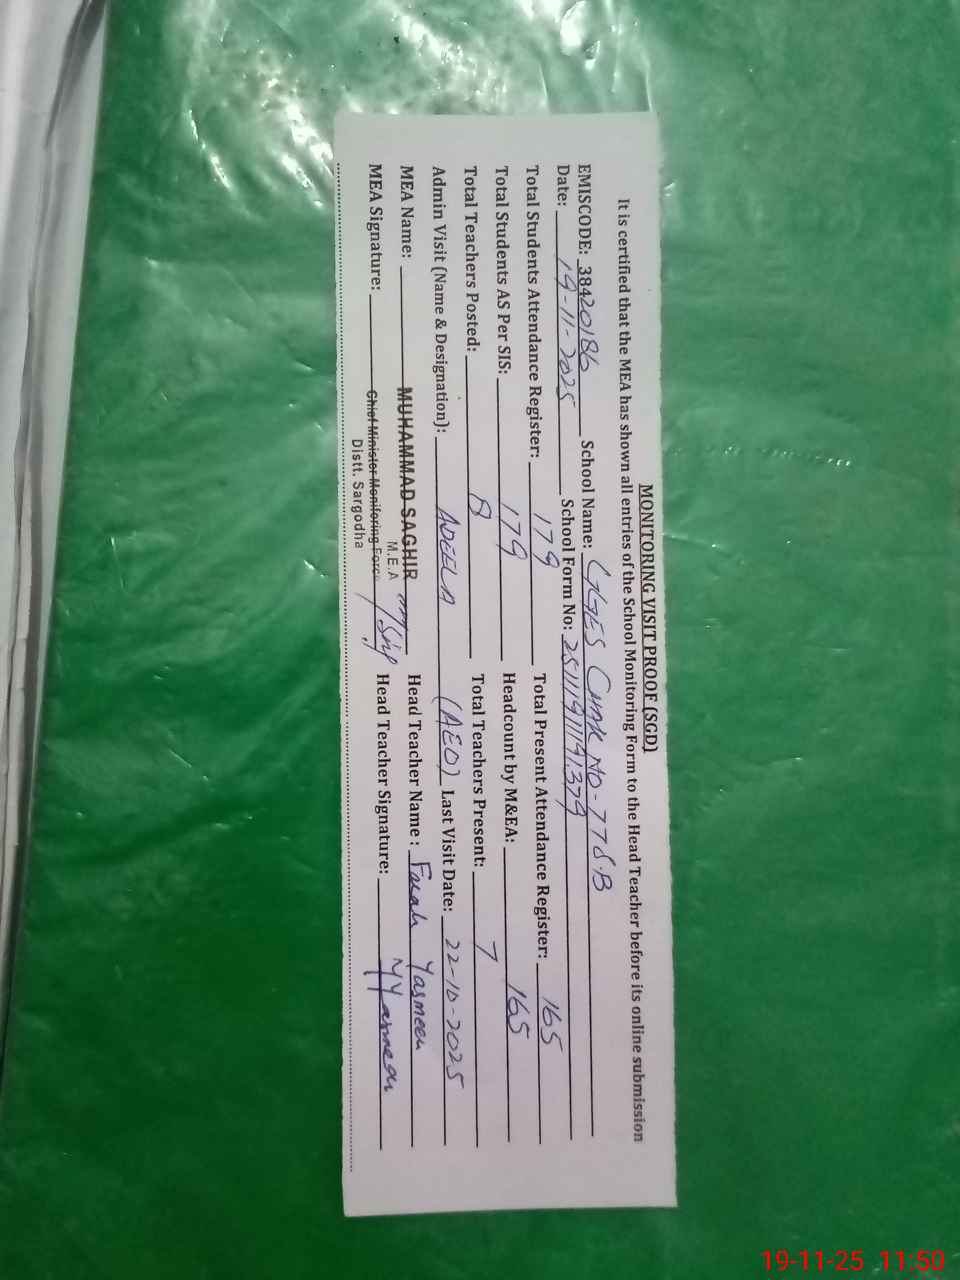 MONITORING VISIT PROOF (SGD)
It is certified that the MEA has shown all entries of the School Monitoring Form to the Head Teacher before its online submission
EMISCODE: 38420186 School Name: GGES CHAK NO-77S.B
Date: 19-11-2025 School Form No: 25111911191379
Total Students Attendance Register: 179 Total Present Attendance Register: 165
Total Students AS Per SIS: 179 Headcount by M&EA: 165
Total Teachers Posted: 8 Total Teachers Present: 7
Admin Visit (Name & Designation): ADEELA (AEO) Last Visit Date: 22-10-2025
MEA Name: MUHAMMAD SAGHIR Head Teacher Name : Farah Yasmeen
M.E.A
MEA Signature: Chief Minister Monitoring Force Head Teacher Signature: Yasmeen
Distt. Sargodha
19-11-25 11:50